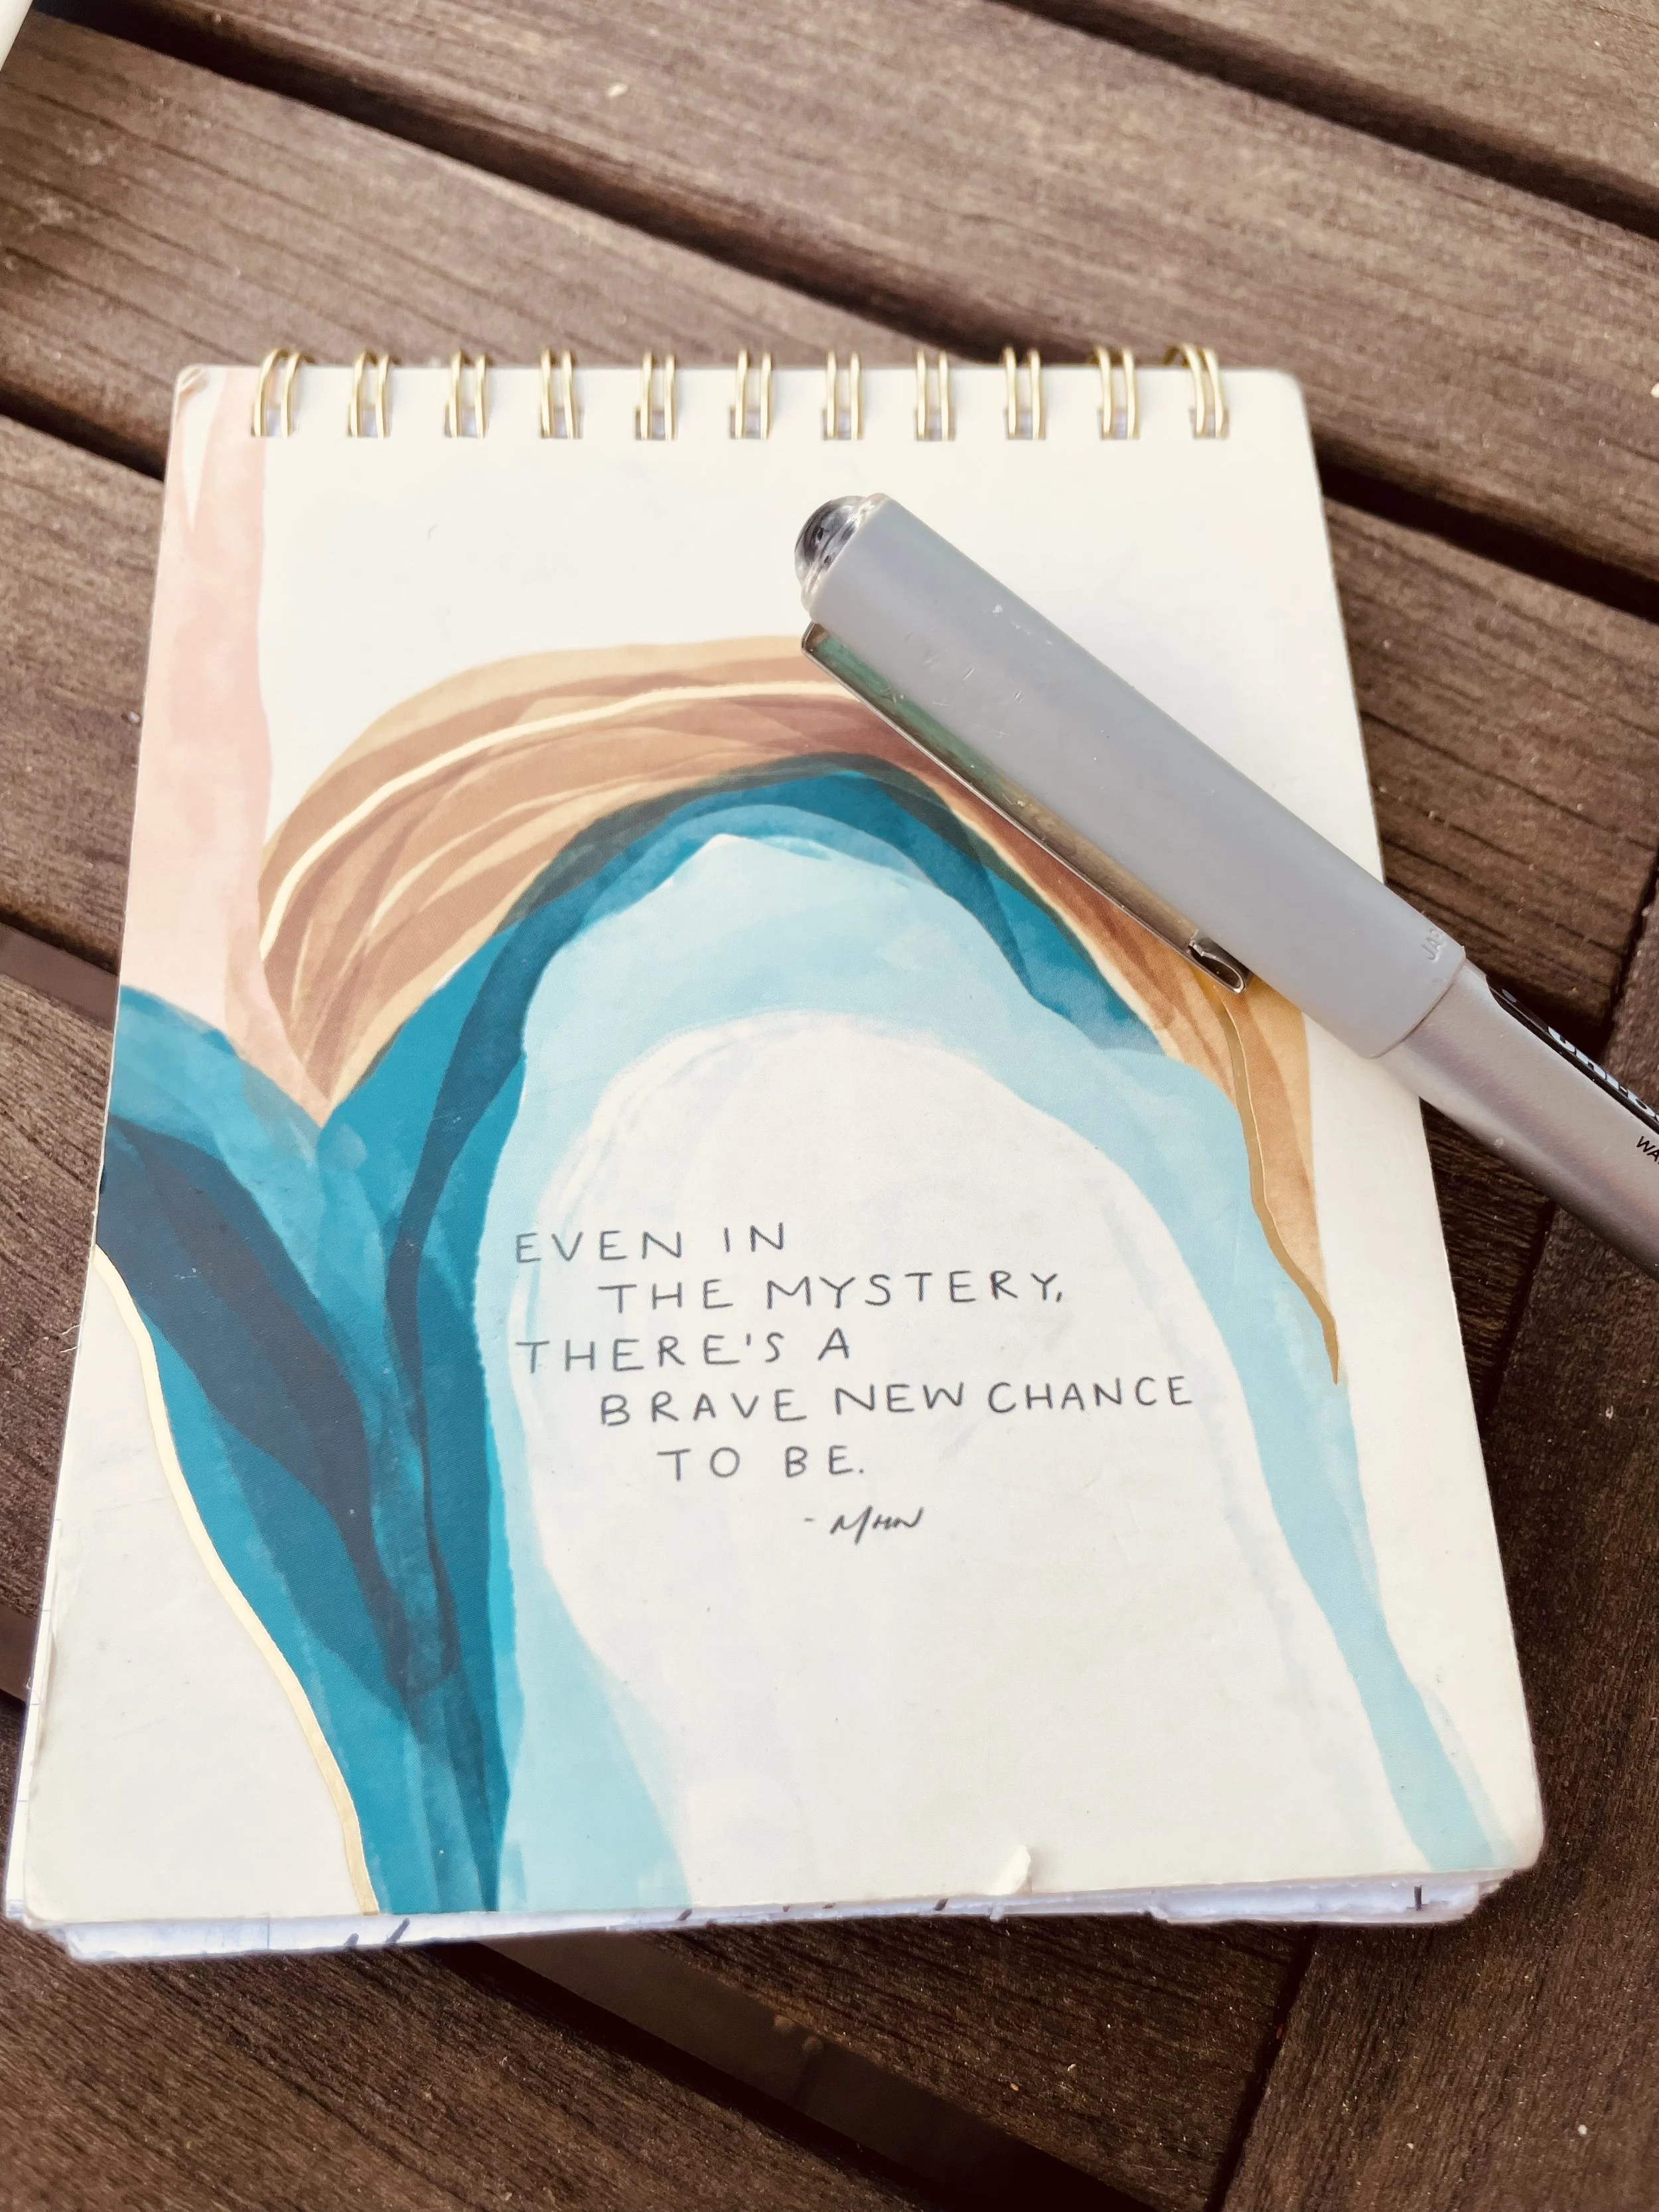 EVEN IN
THE MYSTERY,
THERE'S A
BRAVE NEW CHANCE
TO BE.
- MHN